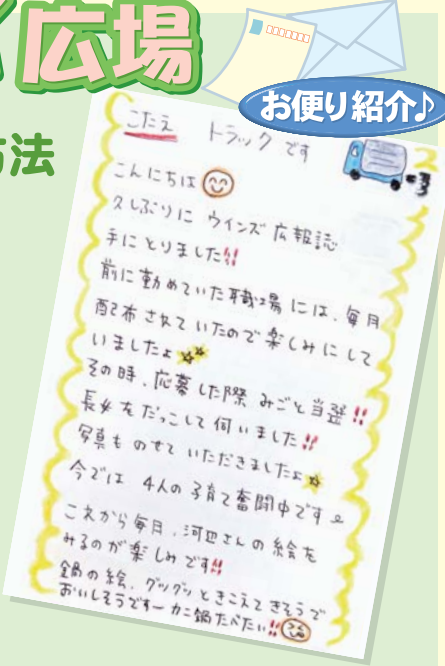 広場
お便り紹介♪
方法
こたえ トラック です
こんにちは
久しぶりに ウインズ 広報誌
手にとりました!!
前に勤めていた職場には、毎月
配布されていたので楽しみにして
いましたよ
その時、応募した際 みごと当選!!
長女をだっこして伺いました!!
写真ものせていただきましたよ
今では 4人の子育て奮闘中です
これから毎日、河辺さんの絵を
みるのが楽しみです!!
鍋の絵、グツグツときこえてきそうで
おいしそうですーカニ鍋たべたい!!